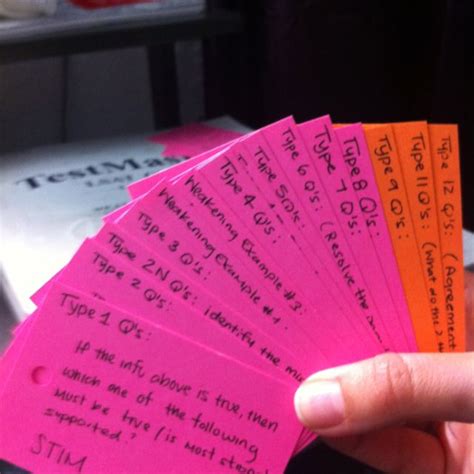 TestMas
Type 1 Q's:
If the info above is true, then
which one of the following
must be true / is most
supported?
STIM
Type 2 Q's:
Type 2N Q's: identify the
Type 3 Q's:
Weakening Example #1:
Weakening Example #3:
Type 4 Q's:
Type 5 Q's:
Type 6 Q's:
Type 7 Q's: (Resolve the
Type 8 Q's:
Type 9 Q's:
Type 11 Q's: (What do the 2
Type 12 Q's: (Agreement